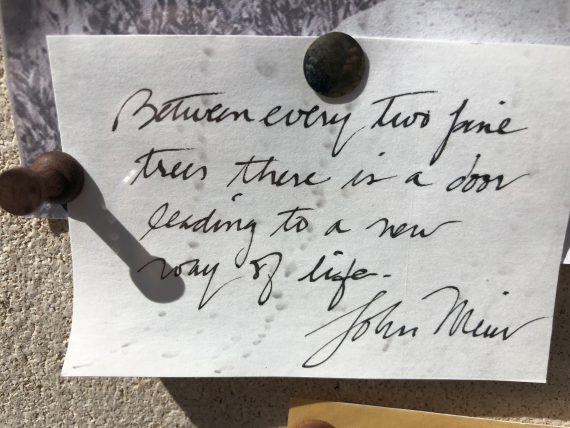 Between every two pine
trees there is a door
leading to a new
way of life.
John Muir